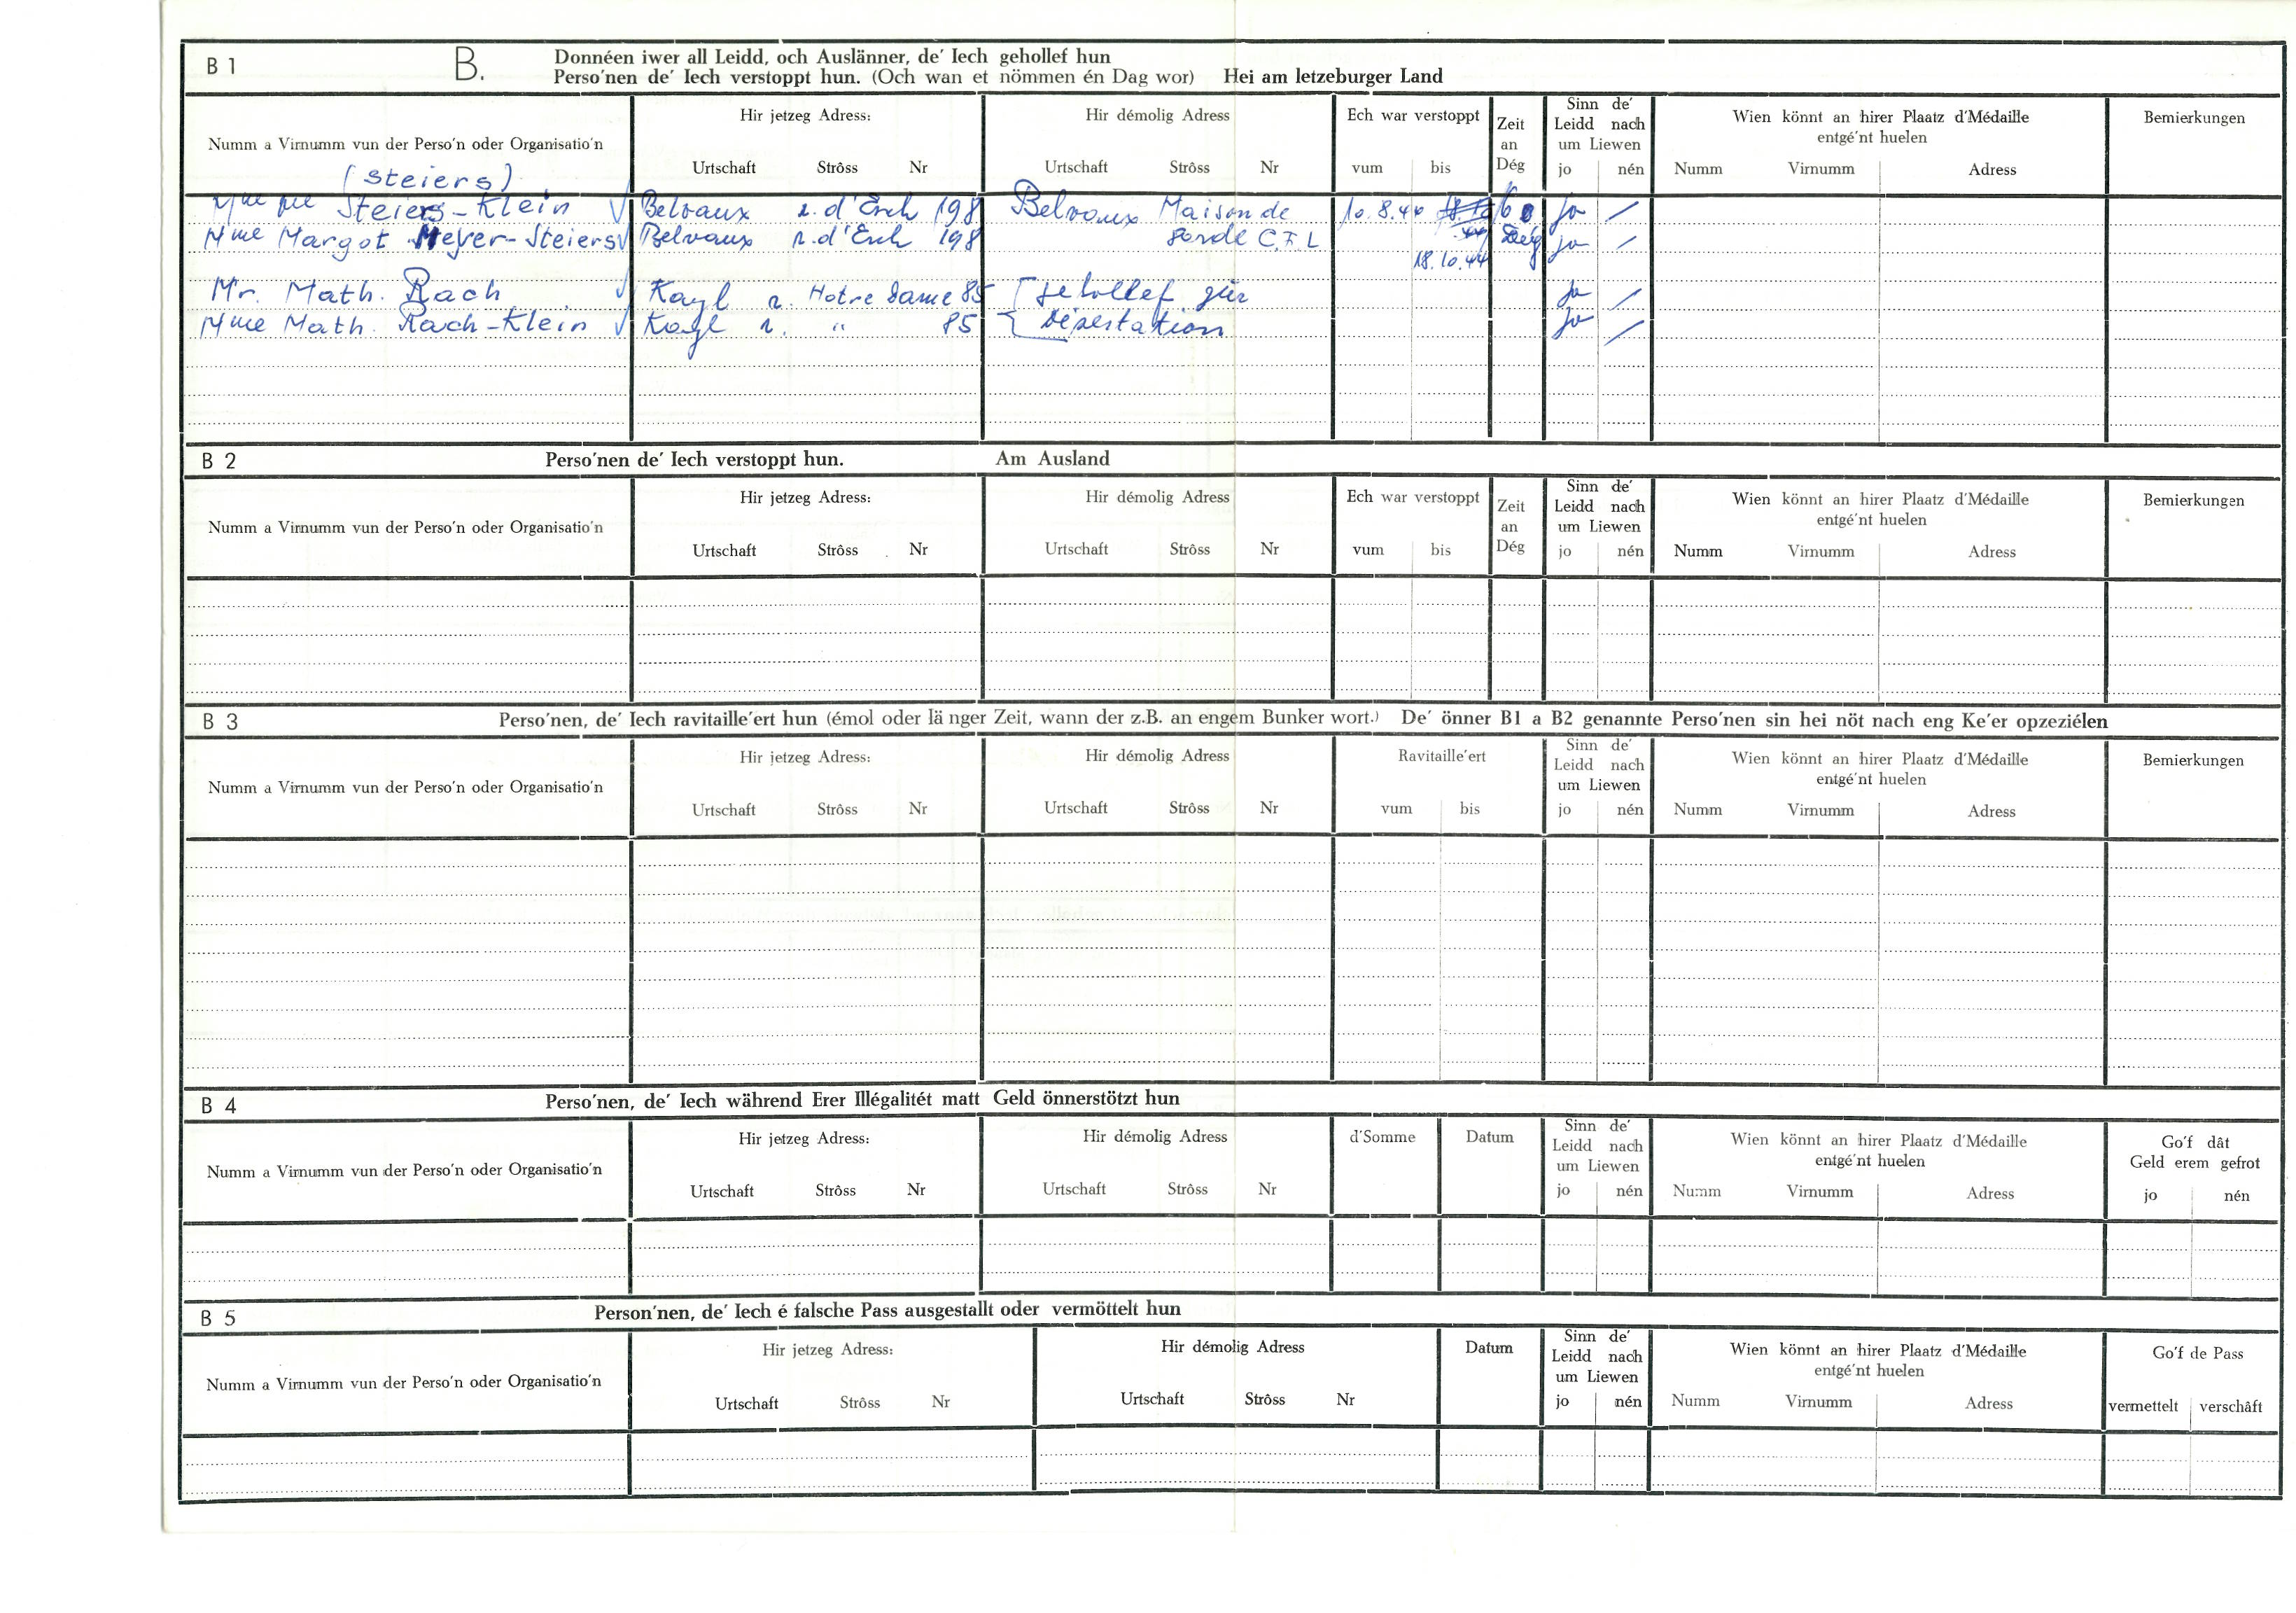 B 1
B.
Donnéen iwer all Leidd, och Auslänner, de' Iech gehollef hun
Perso'nen de' Iech verstoppt hun. (Och wan et nömmen én Dag wor) Hei am letzeburger Land
Numm a Virnumm vun der Perso'n oder Organisatio'n
Hir jetzeg Adress:
Urtschaft Strôss Nr
Hir démolig Adress
Urtschaft Strôss Nr
Ech war verstoppt
vum bis
Zeit an Dég
Sinn de' Leidd nach um Liewen
jo nén
Wien könnt an hirer Plaatz d'Médaille entgé'nt huelen
Numm Virnumm Adress
Bemierkungen
(Steiers)
Mme Steiers-Klein Belvaux r. d'Esch 198 Belvaux Maison de 10.8.44 60 jo
Mme Margot Meyer-Steiers Belvaux r. d'Esch 198 garde C.F.L Dég jo
18.10.44
Mr. Math. Rach Kayl r. Notre Dame 85 gehollef für jo
Mme Math. Rach-Klein Kayl r. " 85 Désertation jo
B 2
Perso'nen de' Iech verstoppt hun. Am Ausland
Numm a Virnumm vun der Perso'n oder Organisatio'n
Hir jetzeg Adress:
Urtschaft Strôss Nr
Hir démolig Adress
Urtschaft Strôss Nr
Ech war verstoppt
vum bis
Zeit an Dég
Sinn de' Leidd nach um Liewen
jo nén
Wien könnt an hirer Plaatz d'Médaille entgé'nt huelen
Numm Virnumm Adress
Bemierkungen
B 3
Perso'nen, de' Iech ravitaille'ert hun (émol oder länger Zeit, wann der z.B. an engem Bunker wort.) De' önner B1 a B2 genannte Perso'nen sin hei nöt nach eng Ke'er opzeziélen
Numm a Virnumm vun der Perso'n oder Organisatio'n
Hir jetzeg Adress:
Urtschaft Strôss Nr
Hir démolig Adress
Urtschaft Strôss Nr
Ravitaille'ert
vum bis
Sinn de' Leidd nach um Liewen
jo nén
Wien könnt an hirer Plaatz d'Médaille entgé'nt huelen
Numm Virnumm Adress
Bemierkungen
B 4
Perso'nen, de' Iech während Erer Illégalitét matt Geld önnerstötzt hun
Numm a Virnumm vun der Perso'n oder Organisatio'n
Hir jetzeg Adress:
Urtschaft Strôss Nr
Hir démolig Adress
Urtschaft Strôss Nr
d'Somme
Datum
Sinn de' Leidd nach um Liewen
jo nén
Wien könnt an hirer Plaatz d'Médaille entgé'nt huelen
Numm Virnumm Adress
Go'f dât Geld erem gefrot
jo nén
B 5
Person'nen, de' Iech é falsche Pass ausgestallt oder vermöttelt hun
Numm a Virnumm vun der Perso'n oder Organisatio'n
Hir jetzeg Adress:
Urtschaft Strôss Nr
Hir démolig Adress
Urtschaft Strôss Nr
Datum
Sinn de' Leidd nach um Liewen
jo nén
Wien könnt an hirer Plaatz d'Médaille entgé'nt huelen
Numm Virnumm Adress
Go'f de Pass
vermettelt verschâft